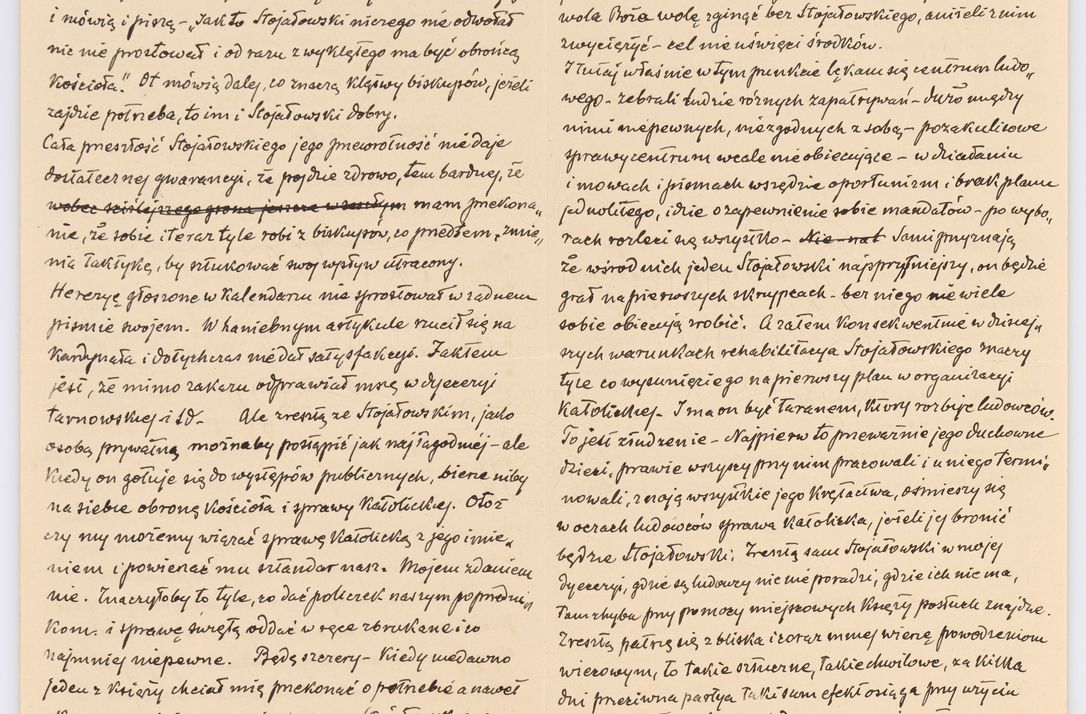 i mówią i piszą – „Jak to Stojałowski niczego nie odwołał
nic nie prostował i od razu z wyklętego ma być obrońcą
Kościoła." Ot mówią dalej, co znaczą klątwy biskupów, jeżeli
zajdzie potrzeba, to im i Stojałowski dobry.
Cała przeszłość Stojałowskiego jego przewrotność nie daje
dostatecznej gwarancyi, że pojdzie zdrowo, tem bardziej, że
wobec ściślejszego grona jeszcze w zeszłym mam przekona„
nie, że sobie i teraz tyle robi z biskupów, co przedtem „zmie„
nia taktykę, by sztukować swoj wpływ utracony.
Herezyę głoszone w Kalendarzu nie sprostował w żadnem
piśmie swojem. W haniebnym artykule rzucił się na
Kardynała i dotychczas nie dał satysfakcyi. Faktem
jest, że mimo zakazu odprawiał mszę w dyecezyi
tarnowskiej i t.d. Ale zresztą ze Stojałowskim, jako
osobą prywatną możnaby postąpić jak najłagodniej – ale
Kiedy on gotuje się do występów publicznych, bierze niby
na siebie obronę Kościoła i sprawy Katolickiej. Otoż
czy my możemy wiązać sprawę Katolicką z jego imie„
niem i powierzać mu sztandar nasz. Mojem zdaniem
nie. Znaczyłoby to tyle, co dać policzek naszym poprzedni„
kom. i sprawę świętą oddać w ręce zbrukane i co
najmniej niepewne. Będę szczery – Kiedy niedawno
jeden z Księży chciał mię przekonać o potrzebie a nawet
wola Boża wolę zginąć bez Stojałowskiego, aniżeli z nim
zwyciężyć – cel nie uświęci środków.
I tutaj właśnie w tym punkcie lękam się centrum ludo„
wego – zebrali ludzie różnych zapatrywań – dużo między
nimi niepewnych, niezgodnych z sobą – pozakulisowe
sprawy centrum wcale nie obiecujące – w działaniu
i mowach i pismach wszędzie oportunizm i brak planu
jednolitego, idzie o zapewnienie sobie mandatów – po wybo„
rach rozleci się wszystko – Sami przyznają
że wśrod nich jeden Stojałowski najsprytniejszy, on będzie
grał na pierwszych skrzypcach – bez niego nie wiele
sobie obiecują zrobić. A zatem Konsekwentnie w dzisiej„
szych warunkach rehabilitacya Stojałowskiego znaczy
tyle co wysunięcie go na pierwszy plan w organizacyi
Katolickiej. I ma on być taranem, Ktory rozbije ludowców.
To jest złudzenie – Najpierw to przeważnie jego duchowne
dzieci, prawie wszyscy przy nim pracowali i u niego termi„
nowali, znają wszystkie jego Krętactwa, ośmieszy się
w oczach ludowców sprawa Katolicka, jeżeli jej bronić
będzie Stojałowski. Zresztą sam Stojałowski w mojej
dyecezyi, gdzie są ludowcy nic nie poradzi, gdzie ich nie ma,
tam chyba przy pomocy miejscowych Księży posłuch znajdzie.
Zresztą patrzę się z bliska i coraz mniej wierzę powodzeniom
wiecowym, to takie sztuczne, takie chwilowe, za Kilka
dni przeciwna partya taki sam efekt osiąga przy użyciu